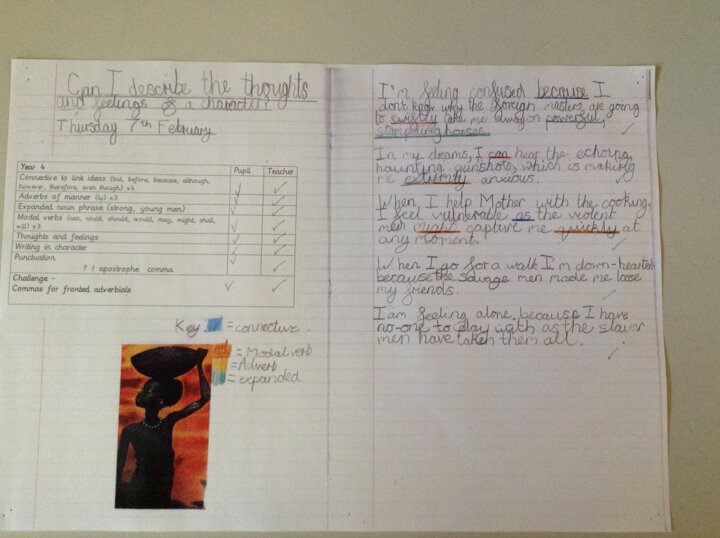 Can I describe the thoughts
and feelings of a character?
Thursday 7th February
Year 4
Pupil
Teacher
Connective to link ideas (but, before, because, although,
however, therefore, even though) x4
Adverbs of manner (ly) x3
Expanded noun phrase (strong, young men)
Modal verbs (can, could, should, would, may, might, shall,
will) x3
Thoughts and feelings
Writing in character
Punctuation
? ! apostrophe comma
Challenge -
Commas for fronted adverbials
Key = connective.
= Modal verb
= Adverb
= expanded
I'm feeling confused because I
don't know why the foreign masters are going
to swiftly take me away on powerful,
stampeding horses.
In my dreams, I can hear the echoing,
haunting gunshots, which is making
me extremly anxious.
When, I help Mother with the cooking,
I feel vulnerable as the violent
men might capture me quickly at
any moment.
When I go for a walk I'm down-hearted
because the savage men made me lose
my friends.
I am feeling alone, because I have
no-one to play with as the slaver
men have taken them all.